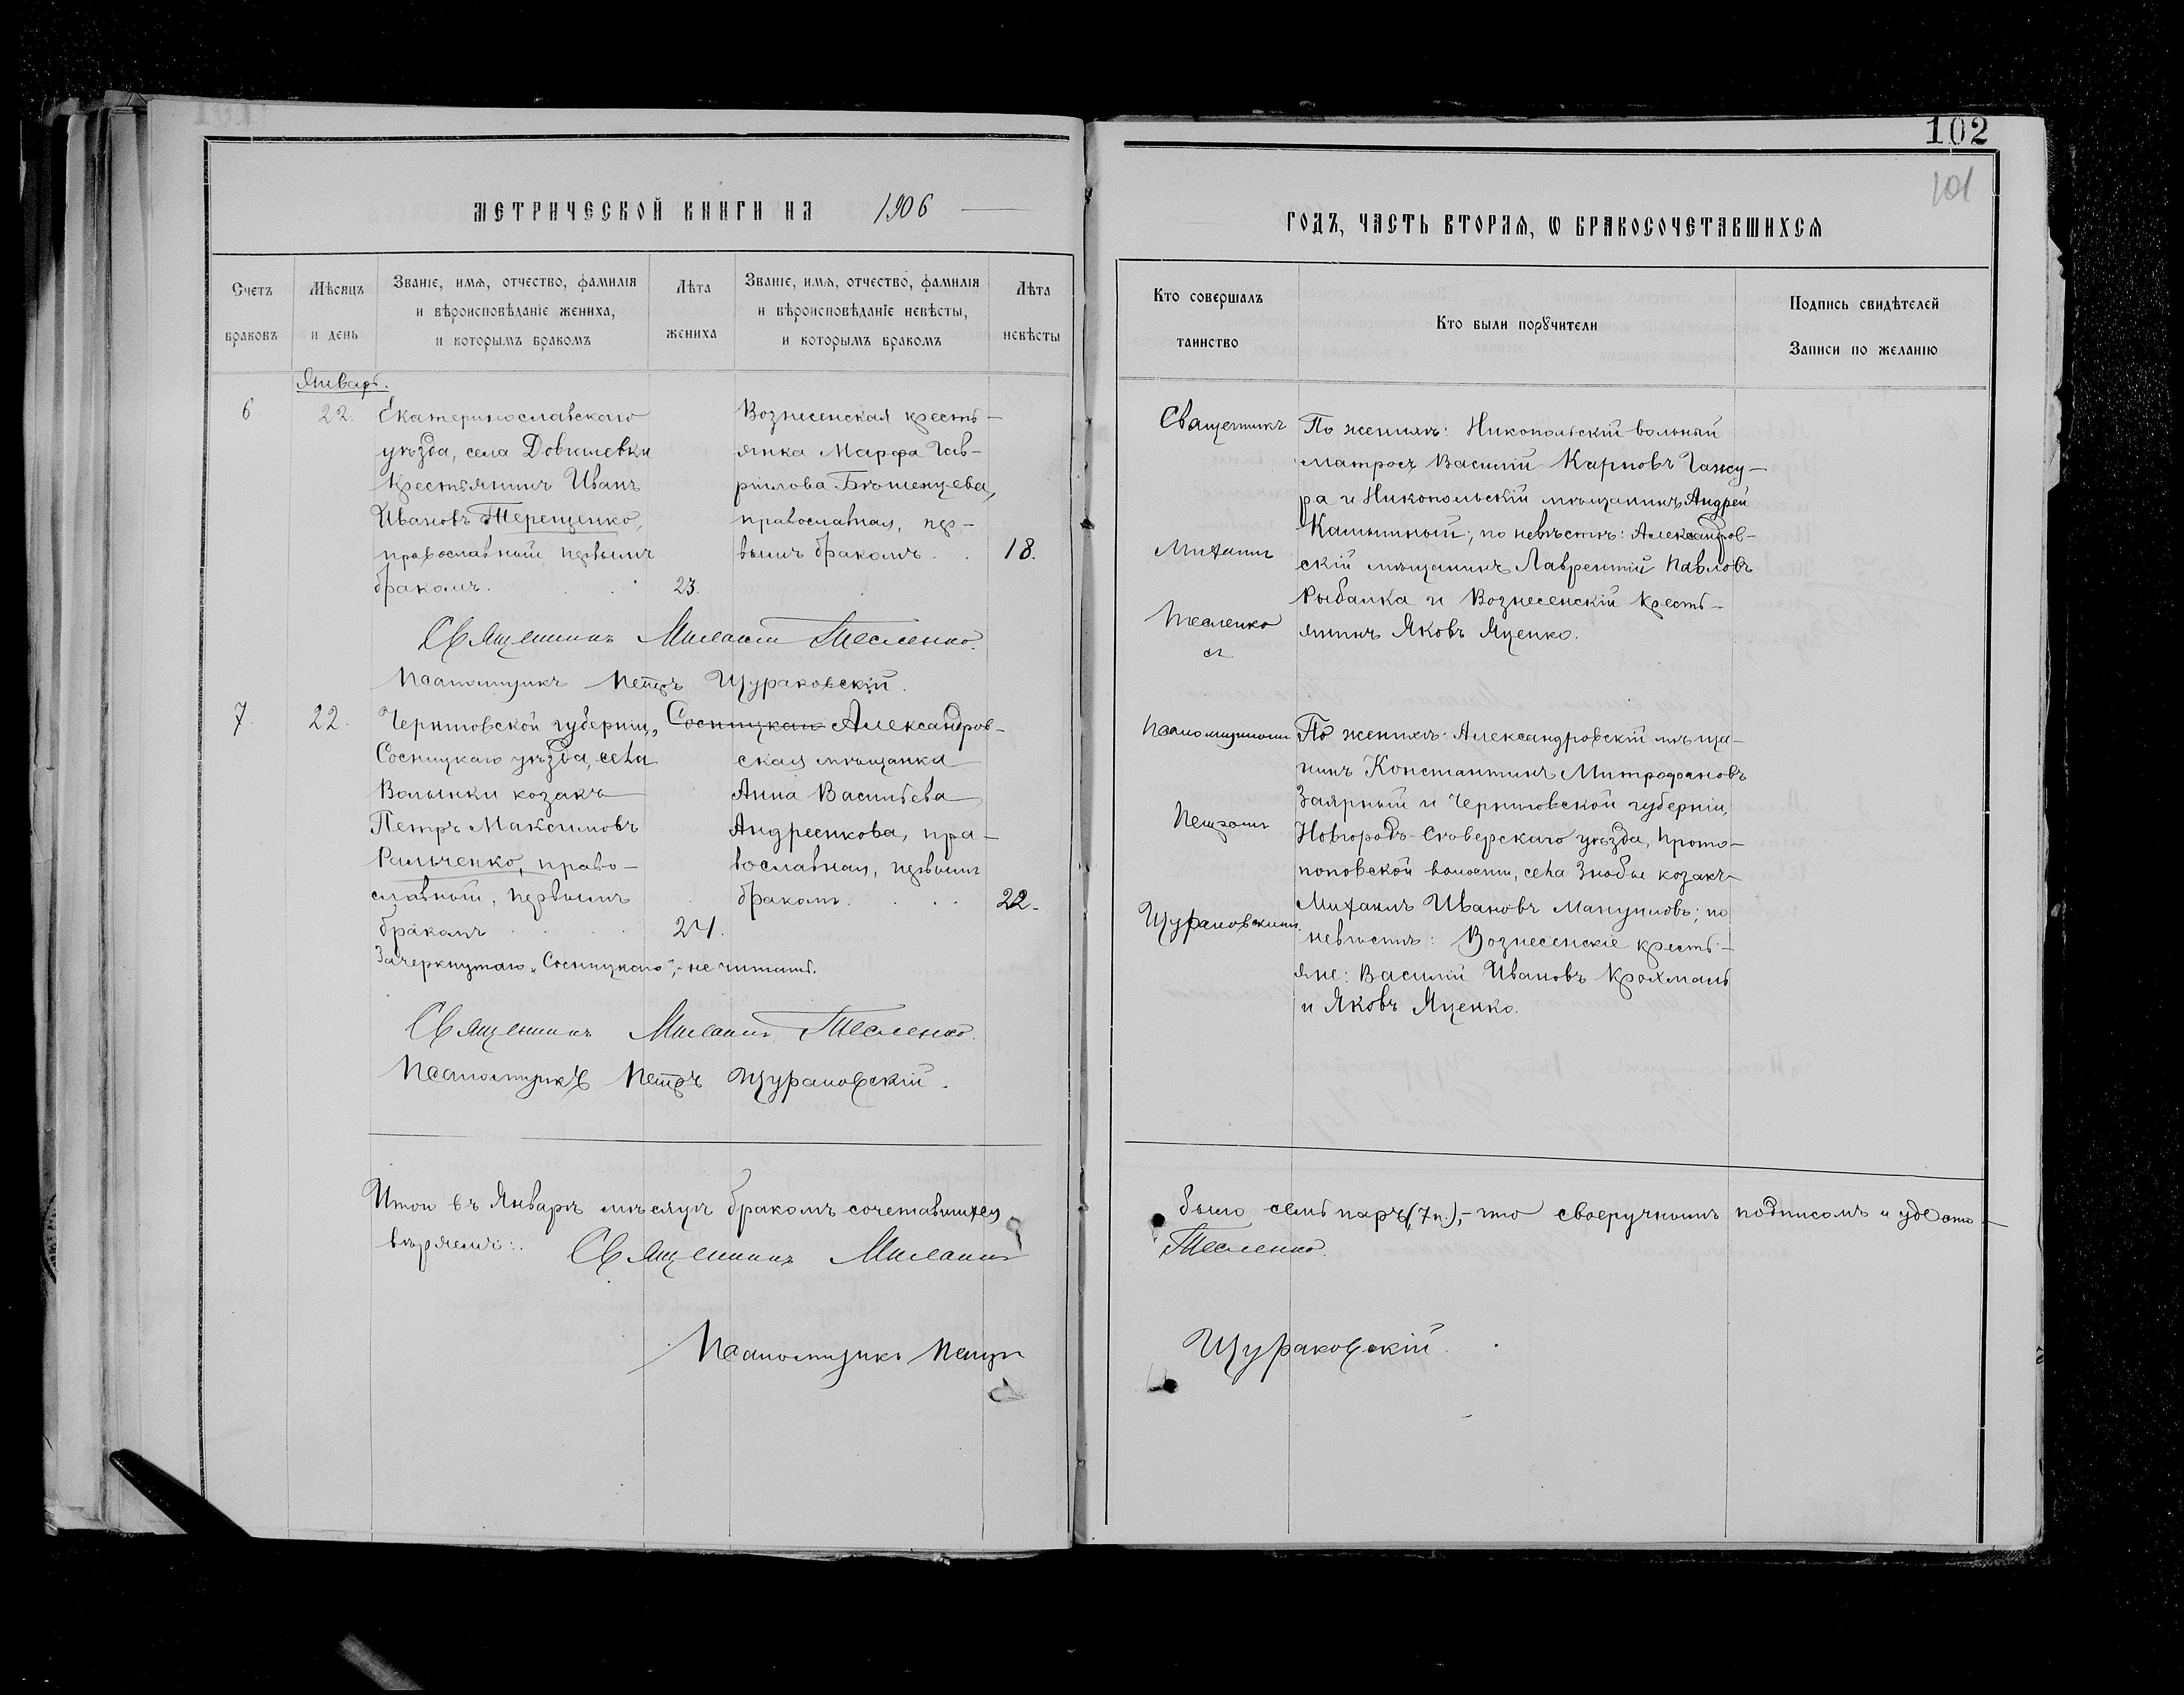 102
101
МЕТРИЧЕСКОЙ КНИГИ НА 1906
ГОДЪ, ЧАСТЬ ВТОРАЯ, Ѡ БРАКОСОЧЕТАВШИХСЯ
Счетъ браковъ
Мѣсяцъ и день
Званіе, имя, отчество, фамилія
и вѣроисповѣданіе жениха,
и которымъ бракомъ
Лѣта жениха
Званіе, имя, отчество, фамилія
и вѣроисповѣданіе невѣсты,
и которымъ бракомъ
Лѣта невѣсты
Кто совершалъ таинство
Кто были порꙋчители
Подпись свидѣтелей
Записи по желанію
Январь.
6.
22.
Екатеринославскаго
уѣзда, села
крестьянинъ Иванъ
Ивановъ Терещенко,
православный, первымъ
бракомъ.
23.
Вознесенская кресть-
янка Марфа Гав-
рiилова
православная, пер-
вымъ бракомъ.
18.
Священникъ
Михаилъ
Тесленко
съ
По женихѣ: Никопольскій вольный
матросъ Василій Карповъ Ганжу-
ра и Никопольскій мѣщанинъ Андрей
Калинный; по невѣстѣ: Александров-
скій мѣщанинъ Лаврентій Павловъ
Рыбалка и Вознесенскій кресть-
янинъ Яковъ Яценко.
Священникъ Михаилъ Тесленко.
Псаломщикъ Петръ Щураковскій.
7.
22.
Черниговской губерніи,
Сосницкаго уѣзда, села
Волынки козакъ
Петръ Максимовъ
Ральченко, право-
славный, первымъ
бракомъ
24.
Александров-
ская мѣщанка
Анна Васильева
Андреенкова, пра-
вославная, первымъ
бракомъ.
22.
Зачеркнутаго „Сосницкаго“, - не читать.
Псаломщикомъ
Петромъ
Щураковскимъ
По женихѣ: Александровскій мѣща-
нинъ Константинъ Митрофановъ
Заярный и Черниговской губерніи,
Новгородъ-Сѣверскаго уѣзда, Прото-
поповской волости, села Знобы козакъ
Михаилъ Ивановъ Мануиловъ; по
невѣстѣ: Вознесенскіе кресть-
яне: Василій Ивановъ Крохмаль
и Яковъ Яценко.
Священникъ Михаилъ Тесленко.
Псаломщикъ Петръ Щураковскій.
Итого въ Январѣ мѣсяцѣ бракомъ сочетавшихся было семь паръ (7 п.), - что своеручнымъ подписомъ и удосто-
вѣряемъ:. Священникъ Михаилъ Тесленко.
Псаломщикъ Петръ Щураковскій.